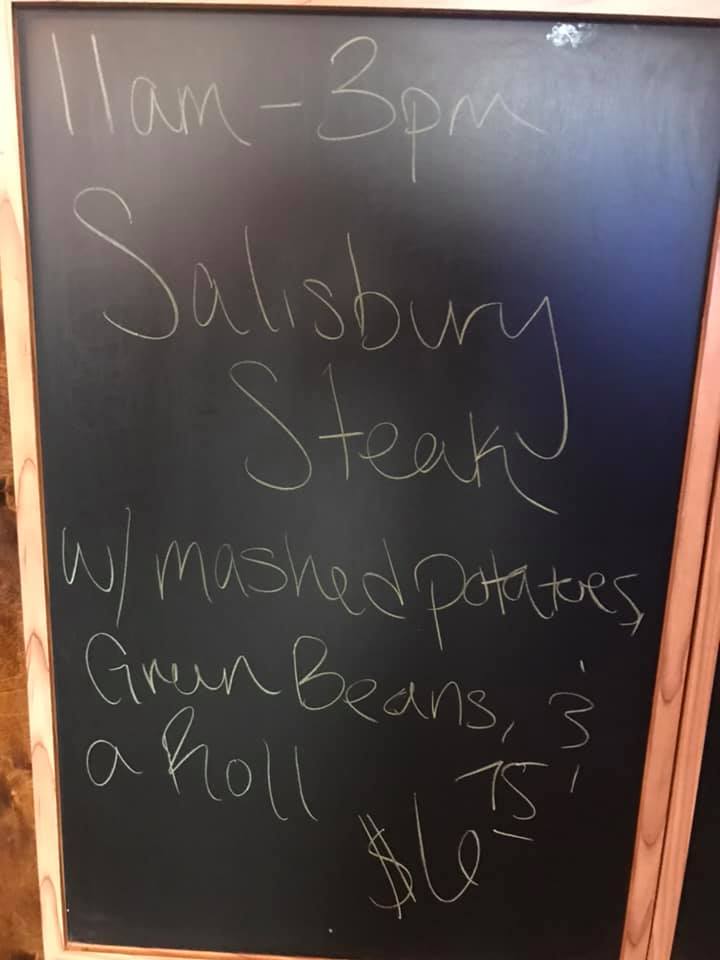 11am - 3pm
Salisbury
Steak
w/ mashed potatoes,
Green Beans, &
a Roll
$6 75